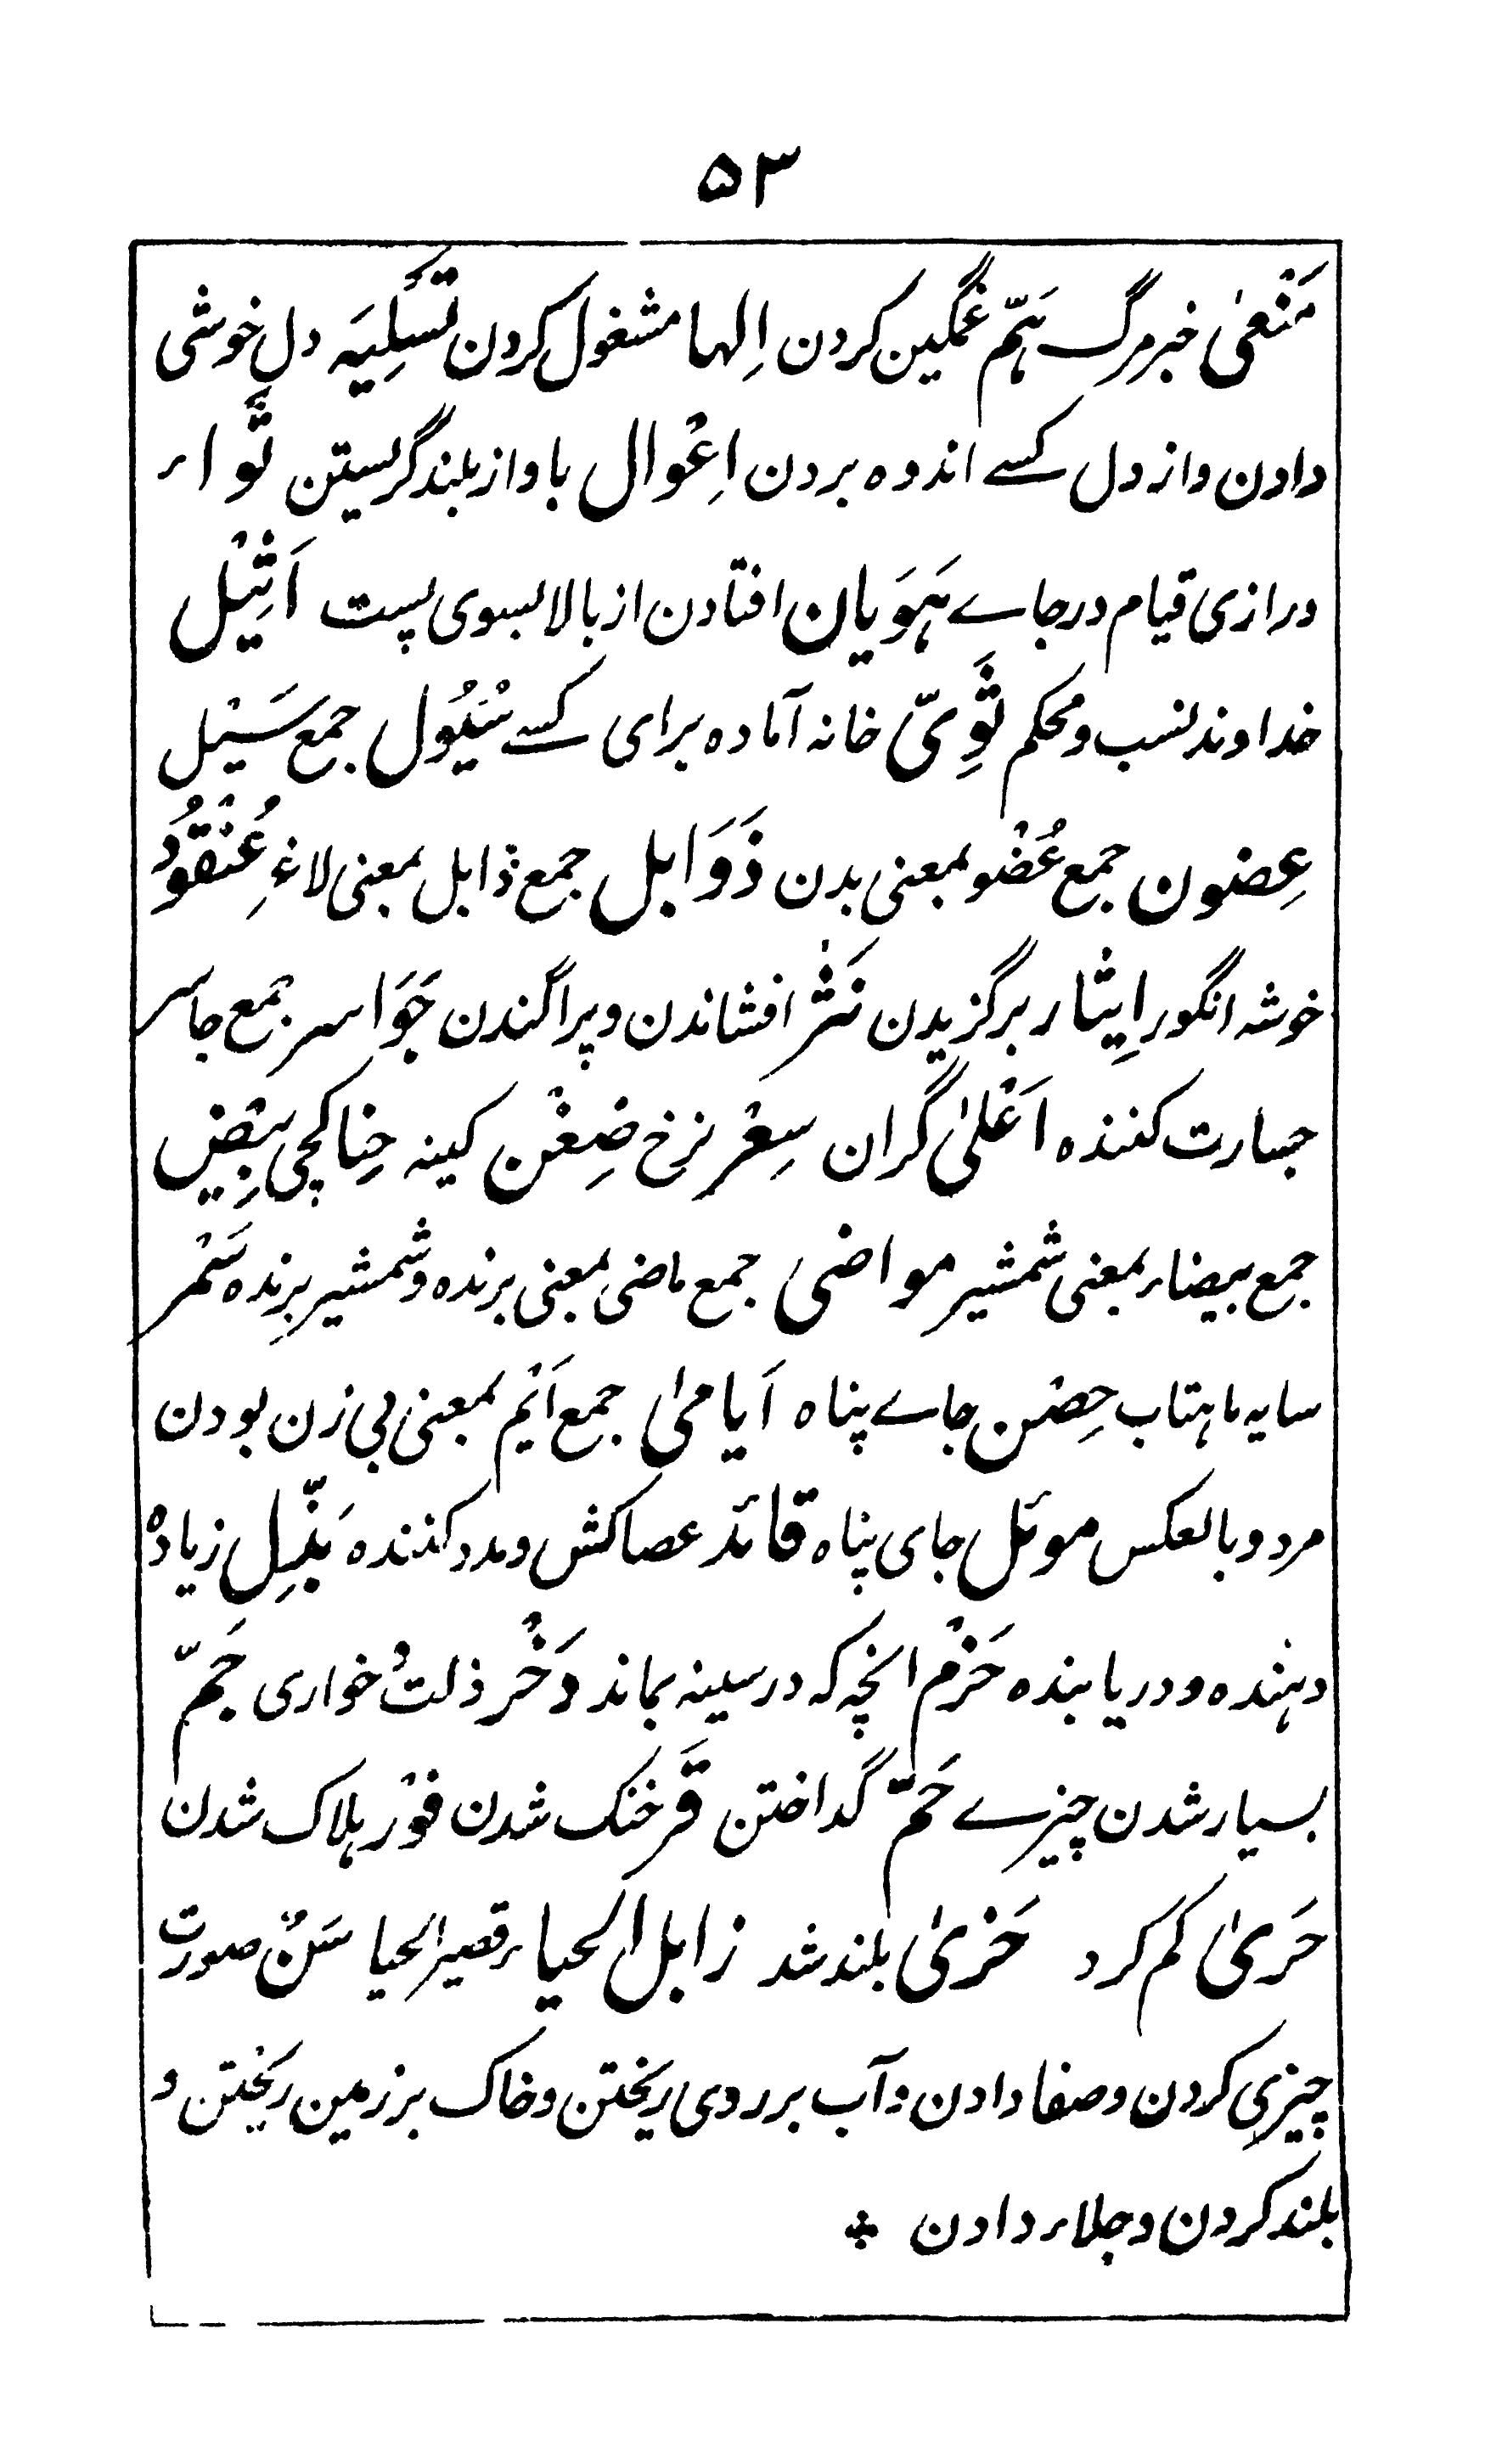 ۵۳
مَنْعیٰ خبر مرگ ہَمّ غمگین کردن اِلہا مشغول کردن تَسْلِیَہ دل خوشی
دادن و از دل کسے اندوہ بردن اِعْوال باواز بلند گریستن ثَواء
درازی قیام در جاے ہَوَیان افتادن از بالا بسوی پست اَثِیْل
خداوند نسب و محکم ثَوِیّ خانہ آمادہ برای کسے سُیُوْل جمع سَیْل
عِضون جمع عُضْو بمعنی بدن ذَوَابل جمع ذابل بمعنی لاغر عُنْقُوْدُ
خوشہ انگور اِیثار برگزیدن نَثْر افشاندن و پراگندن جَوَاسر جمع جاسر
جسارت کنندہ اَغْلیٰ گران سِعْر نرخ ضِغْن کینہ خِنا کجی بِیْض
جمع بیضاء بمعنی شمشیر مواضی جمع ماضی بمعنی برندہ و شمشیر برندہ سَمْر
سایہ ماہتاب حِصْن جاے پناہ اَیامیٰ جمع اَیْم بمعنی بی زن بودن
مرد و بالعکس موئل جای پناہ قائد عصا کش و مدد کنندہ مُنِیْل زیادہ
دہندہ و دریابندہ حَزْم انچہ کہ در سینہ بماند دَخْر ذلت و خواری جَمّ
بسیار شدن چیزے حَمّ گداختن قَر خنک شدن فَوْر ہلاک شدن
حَریٰ کم کرد حَزیٰ بلند شد زابل الحیاء قصیر الحیا سَنّ صورت
چیزی کردن و صفا دادن و آب بر روی ریختن و خاک بر زمین ریختن و
بلند کردن و جلاء دادن ÷